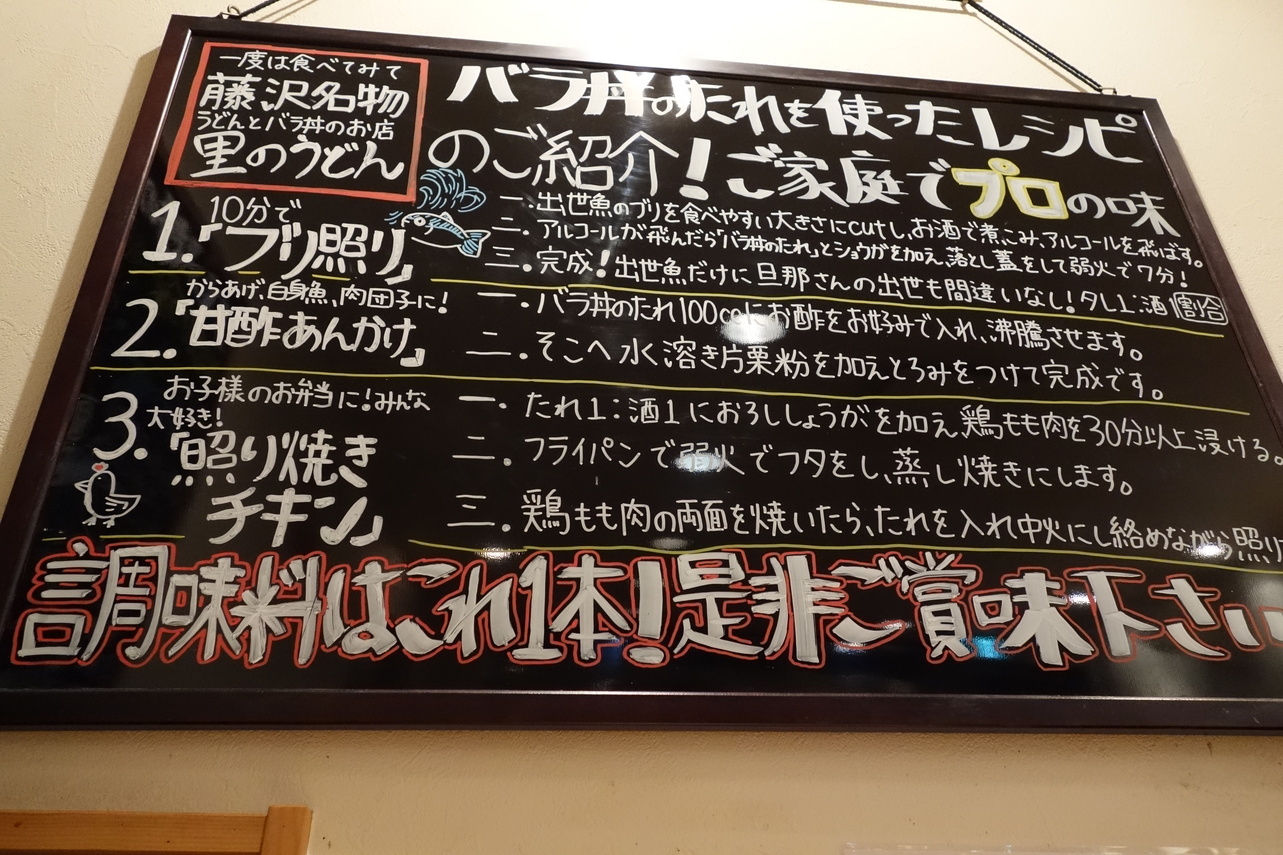 一度は食べてみて
藤沢名物
うどんとバラ丼のお店
里のうどん
バラ丼のたれを使ったレシピ
のご紹介!ご家庭でプロの味
1.10分で
「ブリ照り」
一.出世魚のブリを食べやすい大きさにcutし、お酒で煮こみ、アルコールを飛ばす。
二.アルコールが飛んだら「バラ丼のたれ」とショウガを加え、落とし蓋をして弱火で7分!
三.完成!出世魚だけに旦那さんの出世も間違いなし!タレ1:酒1割合
からあげ、白身魚、肉団子に!
2.「甘酢あんかけ」
一.バラ丼のたれ100ccにお酢をお好みで入れ、沸騰させます。
二.そこへ水溶き片栗粉を加えとろみをつけて完成です。
お子様のお弁当に!みんな
大好き!
3.「照り焼き
チキン」
一.たれ1:酒1におろししょうがを加え、鶏もも肉を30分以上浸ける。
二.フライパンで弱火でフタをし、蒸し焼きにします。
三.鶏もも肉の両面を焼いたら、たれを入れ中火にし絡めながら照り
調味料はこれ1本!是非ご賞味下さい